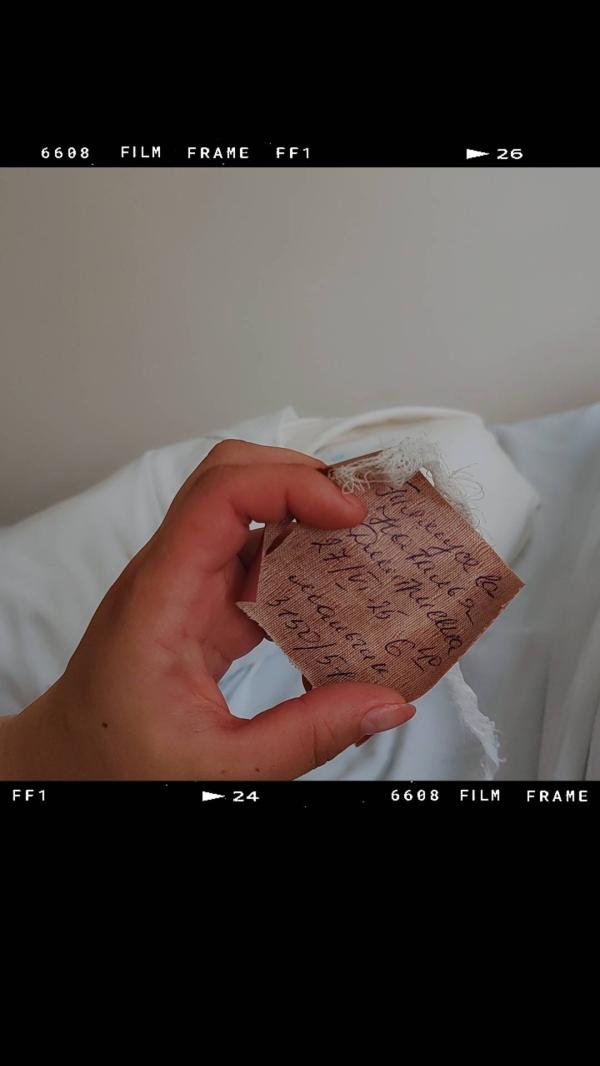 6608 FILM FRAME FF1 26
Наталья
Дмитриевна
27/VI 26 6 10
мальчик
3150/51
FF1 24 6608 FILM FRAME